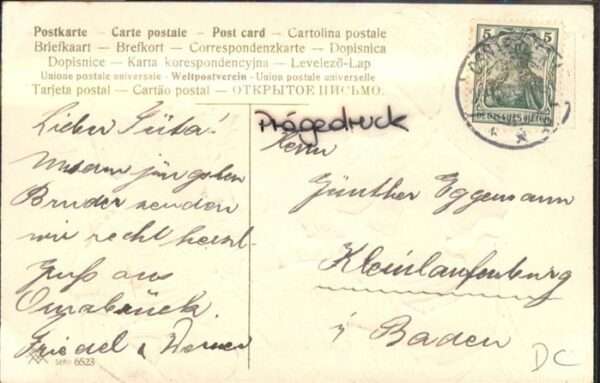 Postkarte – Carte postale – Post card – Cartolina postale
Briefkaart – Brefkort – Correspondenzkarte – Dopisnica
Dopisnice – Karta korespondencyjna – Levelező-Lap
Unione postale universale – Weltpostverein – Union postale universelle
Tarjeta postal – Cartão postal – ОТКРЫТОЕ ПИСЬМО.
5 5
DEUTSCHES REICH
Prägedruck
Lieber
Bruder senden
wir recht herzl.
Gruß aus
Osnabrück.
Friedel & Werner
Serie 6523
Herrn
Günther Eggemann
Kleinlaufenburg
i/ Baden
DC